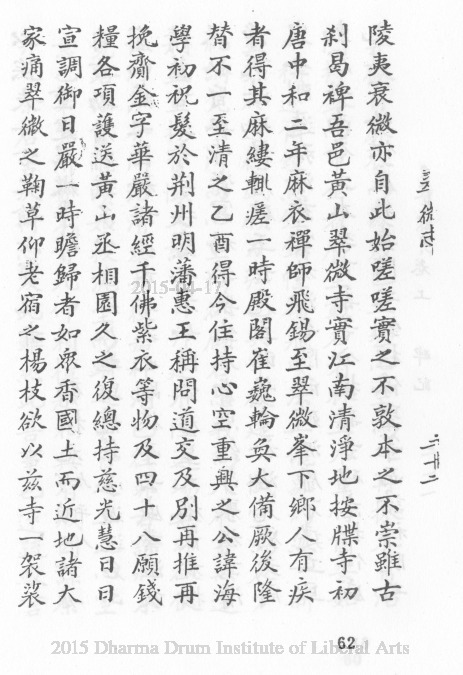 陵夷衰微亦自此始嗟嗟實之不敦本之不崇雖古
刹曷裨吾邑黃山翠微寺實江南清淨地按牒寺初
唐中和二年麻衣禪師飛錫至翠微峯下鄉人有疾
者得其麻縷輒瘥一時殿閣崔巍輪奐大備厥後隆
替不一至清之乙酉得今住持心空重興之公諱海
學初祝髮於荆州明藩惠王稱問道交及別再推再
挽齎金字華嚴諸經千佛紫衣等物及四十八願錢
糧各項護送黃山丞相園久之復總持慈光慧日日
宣調御日嚴一時瞻歸者如眾香國土而近地諸大
家痛翠微之鞠草仰老宿之楊枝欲以茲寺一袈裟
62
2015-04-17
2015 Dharma Drum Institute of Liberal Arts